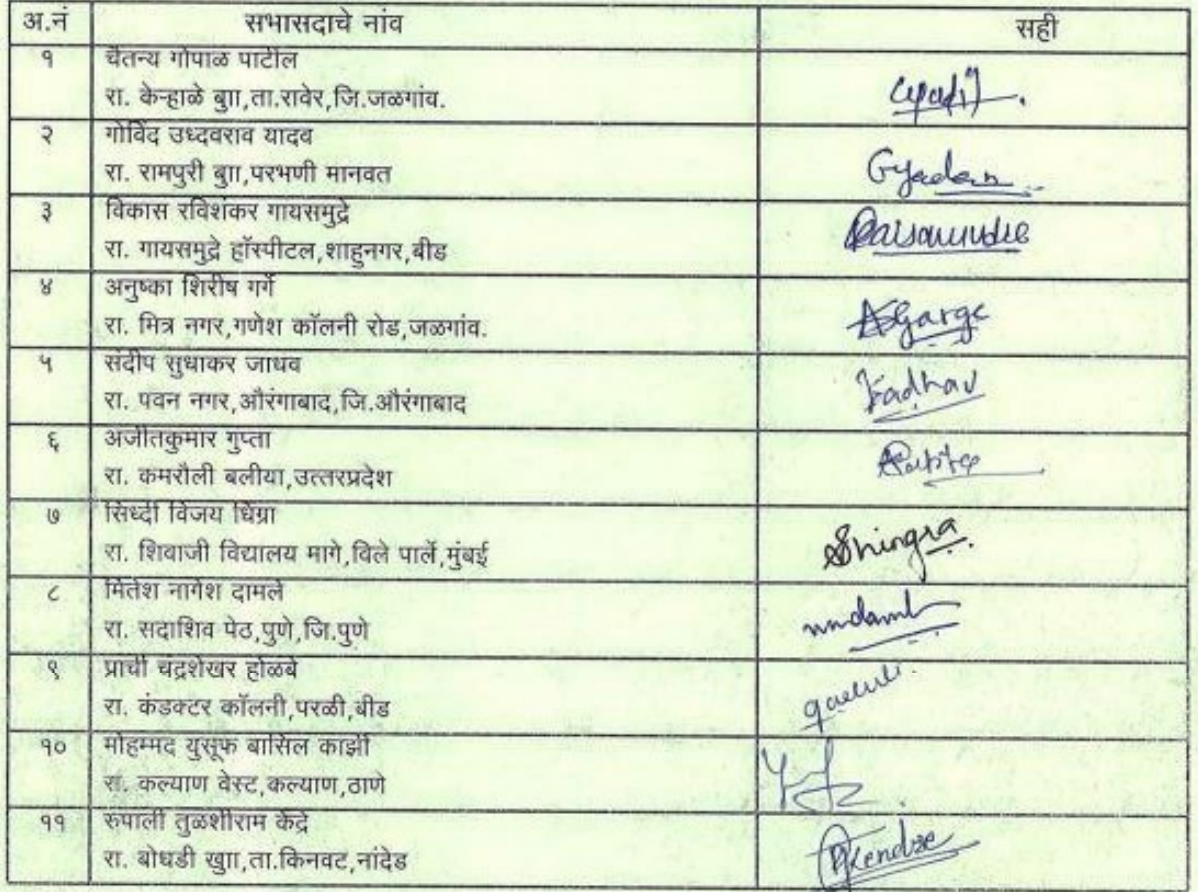 अ.नं सभासदाचे नांव सही
१ चैतन्य गोपाळ पाटील
रा. केऱ्हाळे बुा,ता.रावेर,जि.जळगांव.
२ गोविंद उध्दवराव यादव
रा. रामपुरी बुा,परभणी मानवत
Gyadav
३ विकास रविशंकर गायसमुद्रे
रा. गायसमुद्रे हॉस्पीटल,शाहुनगर,बीड
४ अनुष्का शिरीष गर्गे
रा. मित्र नगर,गणेश कॉलनी रोड,जळगांव.
ASGarge
५ संदीप सुधाकर जाधव
रा. पवन नगर,औरंगाबाद,जि.औरंगाबाद
Jadhav
६ अजीतकुमार गुप्ता
रा. कमरौली बलीया,उत्तरप्रदेश
७ सिध्दी विजय धिंग्रा
रा. शिवाजी विद्यालय मागे,विले पार्ले,मुंबई
८ मितेश नागेश दामले
रा. सदाशिव पेठ,पुणे,जि.पुणे
९ प्राची चंद्रशेखर होळबे
रा. कंडक्टर कॉलनी,परळी,बीड
१० मोहम्मद युसूफ बासिल काझी
रा. कल्याण वेस्ट,कल्याण,ठाणे
११ रुपाली तुळशीराम केंद्रे
रा. बोधडी खुा,ता.किनवट,नांदेड
RKendre